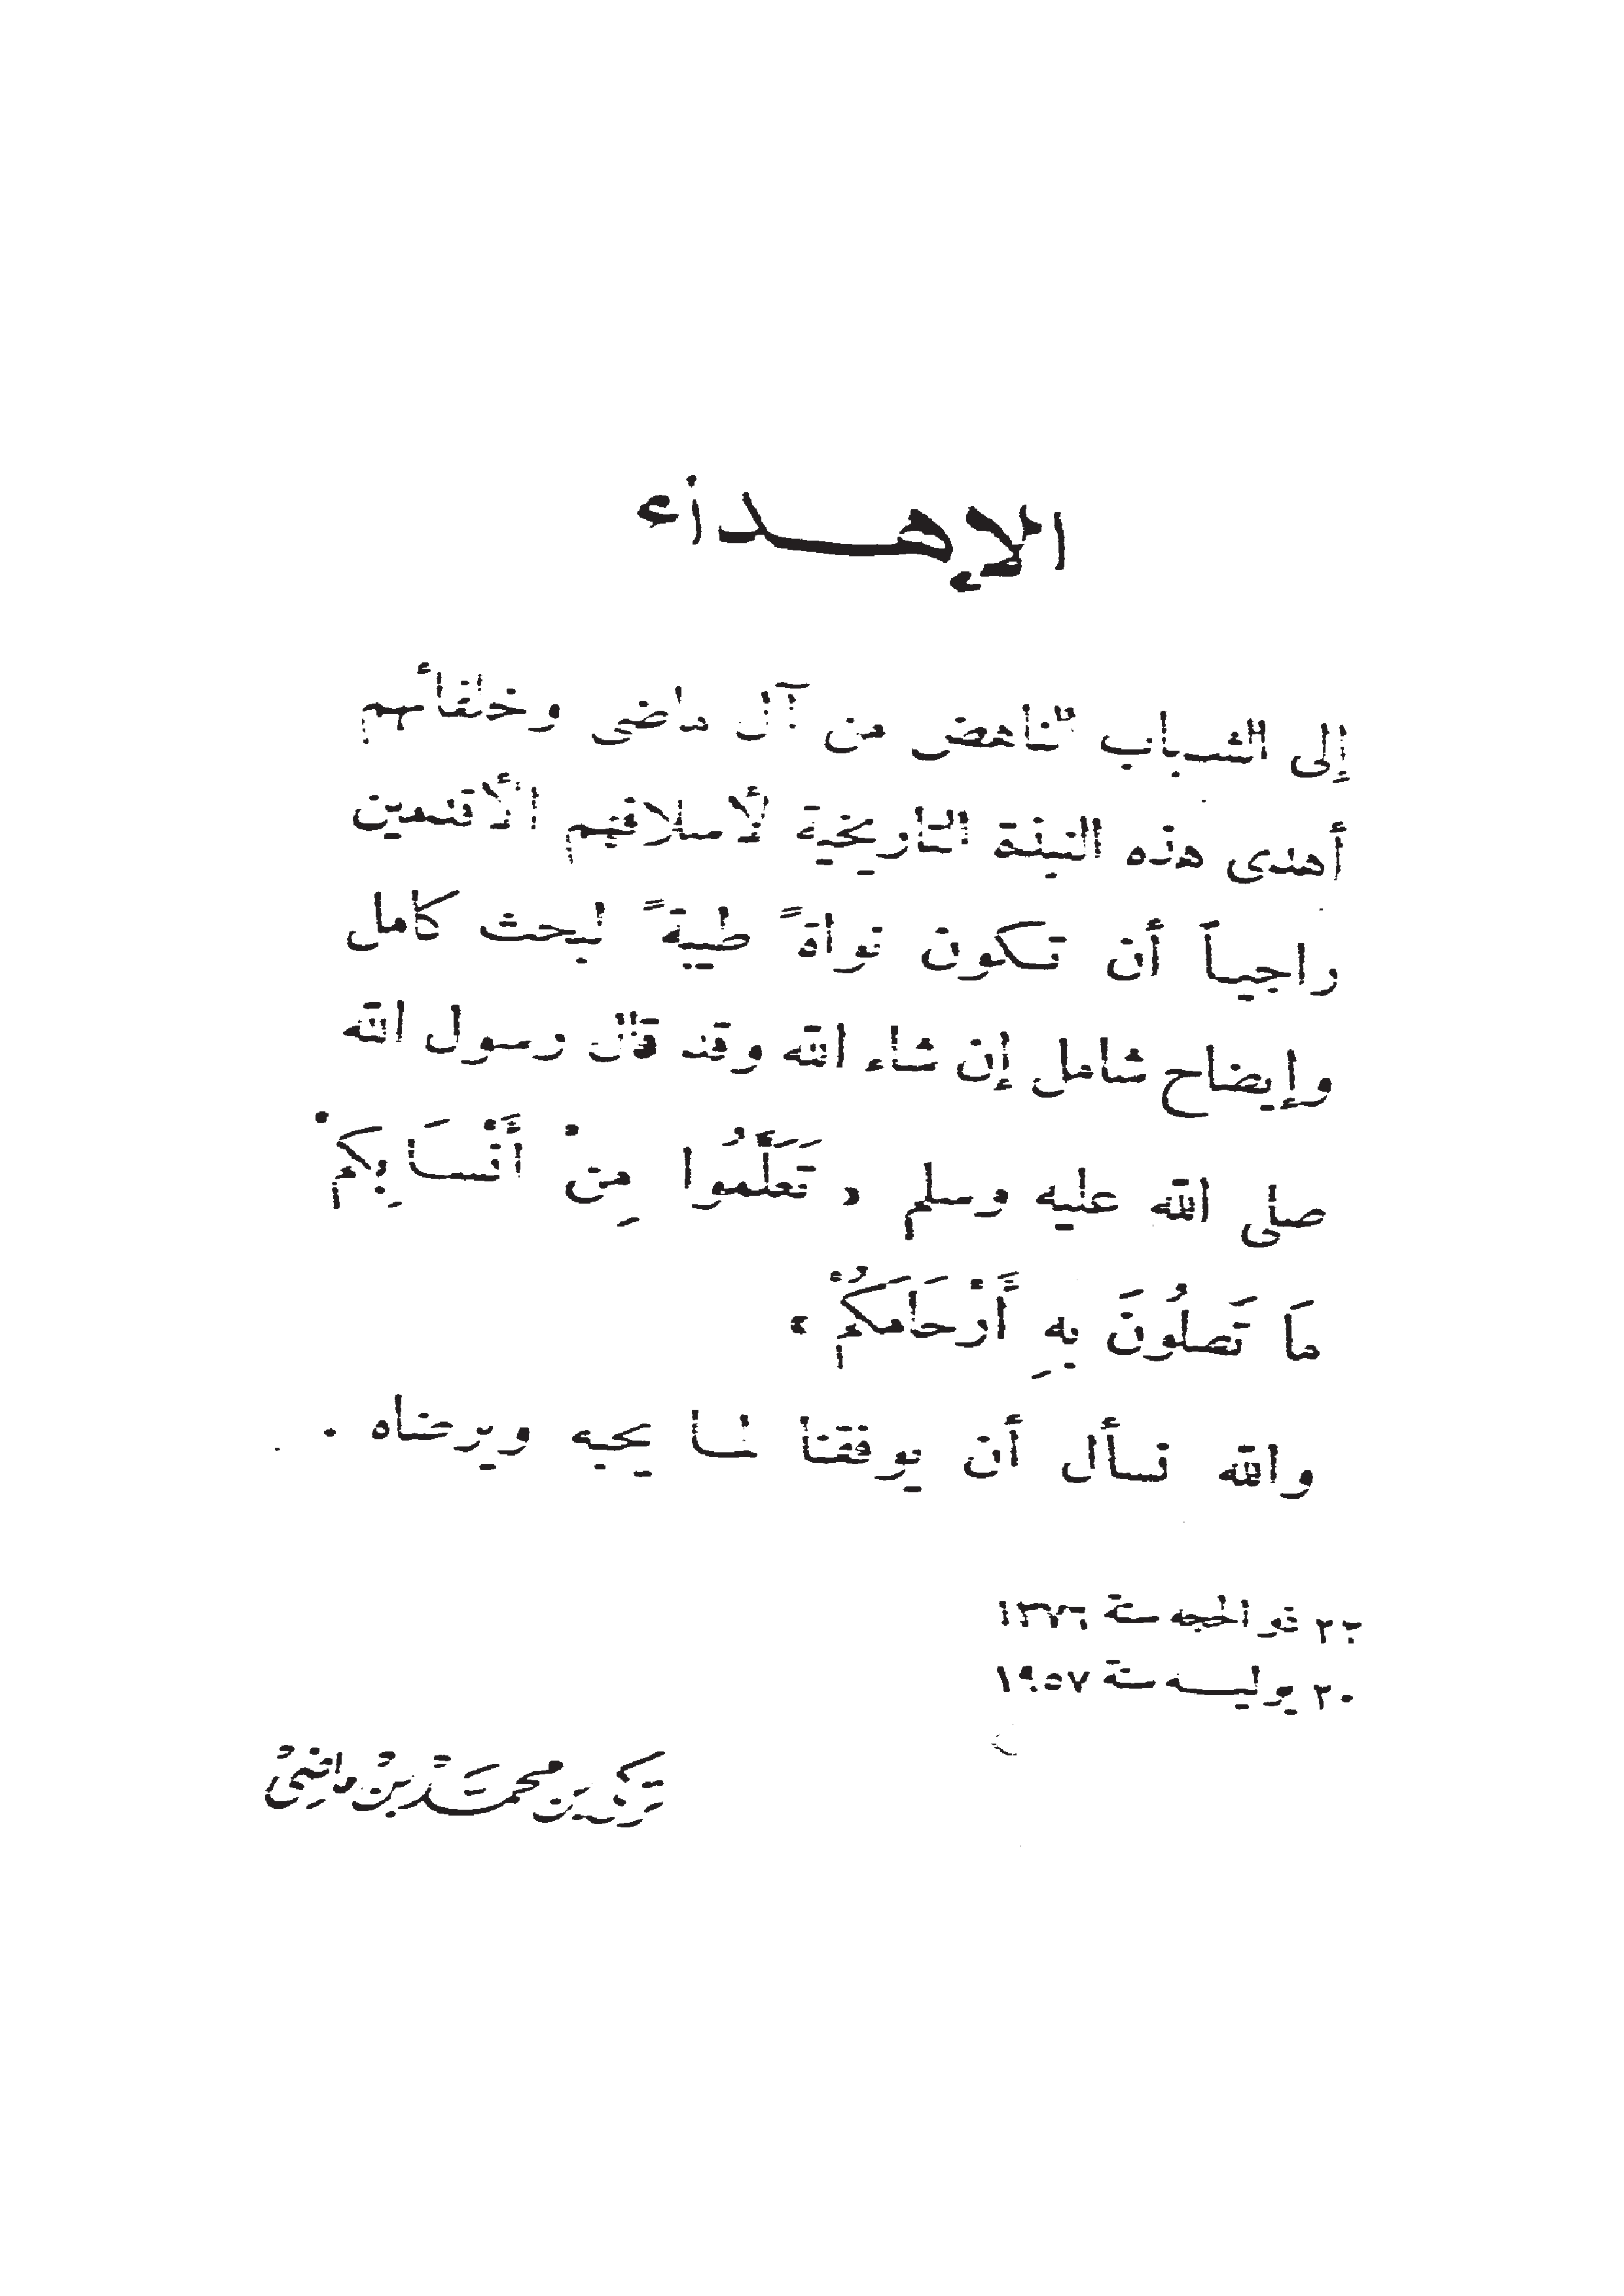 الإهداء
إلى الشباب الناهض من آل ماضى وخلفائهم
أهدى هذه النبذة التاريخية لأسلافهم الأقدمين
راجياً أن تكون نواةً طيبةً لبحث كامل
وإيضاح شامل إن شاء الله وقد قال رسول الله
صلى الله عليه وسلم « تَعَلَّمُوا مِنْ أَنْسَابِكُمْ
مَا تَصِلُونَ بِهِ أَرْحَامَكُمْ »
والله نسأل أن يوفقنا لما يحبه ويرضاه .
٢٢ ذو الحجه سنة ١٣٧٦
٢٠ يوليه سنة ١٩٥٧
تركي بن محمد بن ماضي